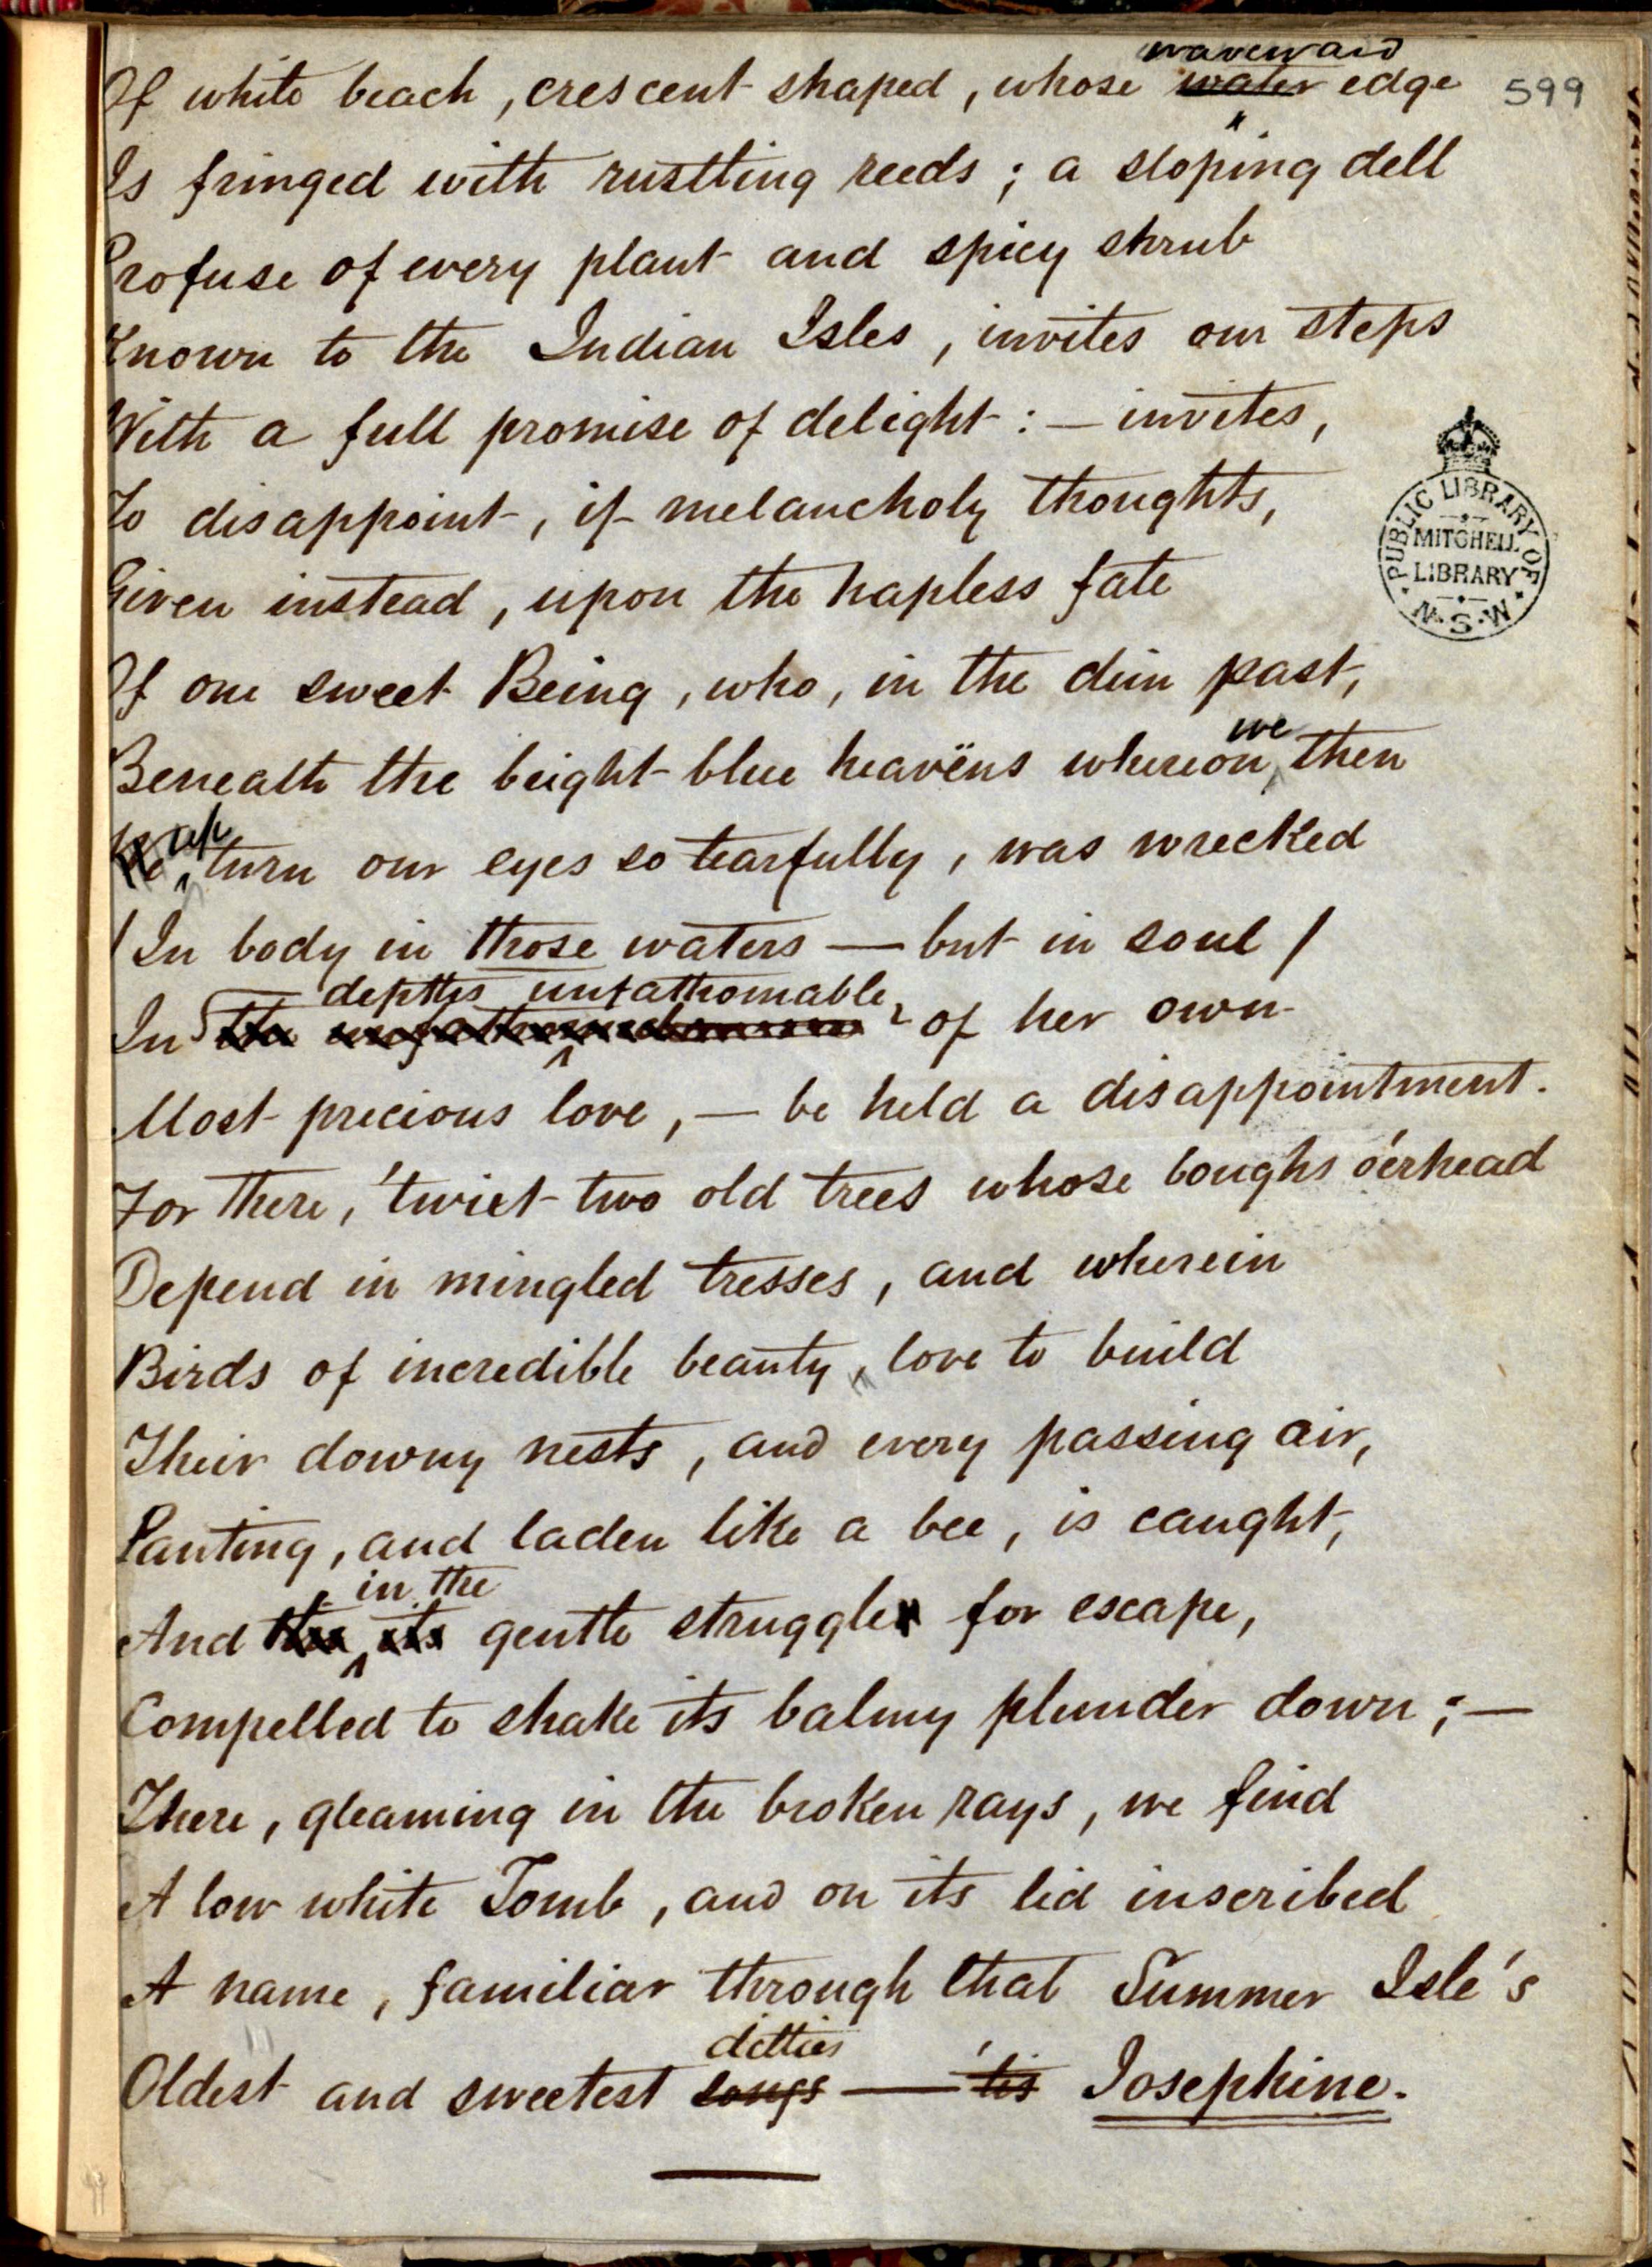 waveward
Of white beach, crescent shaped, whose water edge 599
Is fringed with rustling reeds; a sloping dell
Profuse of every plant and spicy shrub
Known to the Indian Isles, invites our steps
With a full promise of delight: — invites,
To disappoint, if melancholy thoughts,
Given instead, upon the hapless fate
Of one sweet Being, who, in the dim past,
we
Beneath the bright blue heavëns whereon then
up
We turn our eyes so tearfully, was wrecked
(In body in those waters — but in soul /
depths unfathomable
In the of her own
Most precious love, — be held a disappointment.
For there, 'twixt two old trees whose boughs o'erhead
Depend in mingled tresses, and wherein
Birds of incredible beauty, love to build
Their downy nests, and every passing air,
Panting, and laden like a bee, is caught,
in the
And the its gentle struggle for escape,
Compelled to shake its balmy plunder down; —
There, gleaming in the broken rays, we find
A low white Tomb, and on its lid inscribed
A name, familiar through that Summer Isle's
ditties
Oldest and sweetest songs — 'tis Josephine.
PUBLIC LIBRARY OF N.S.W.
MITCHELL
LIBRARY